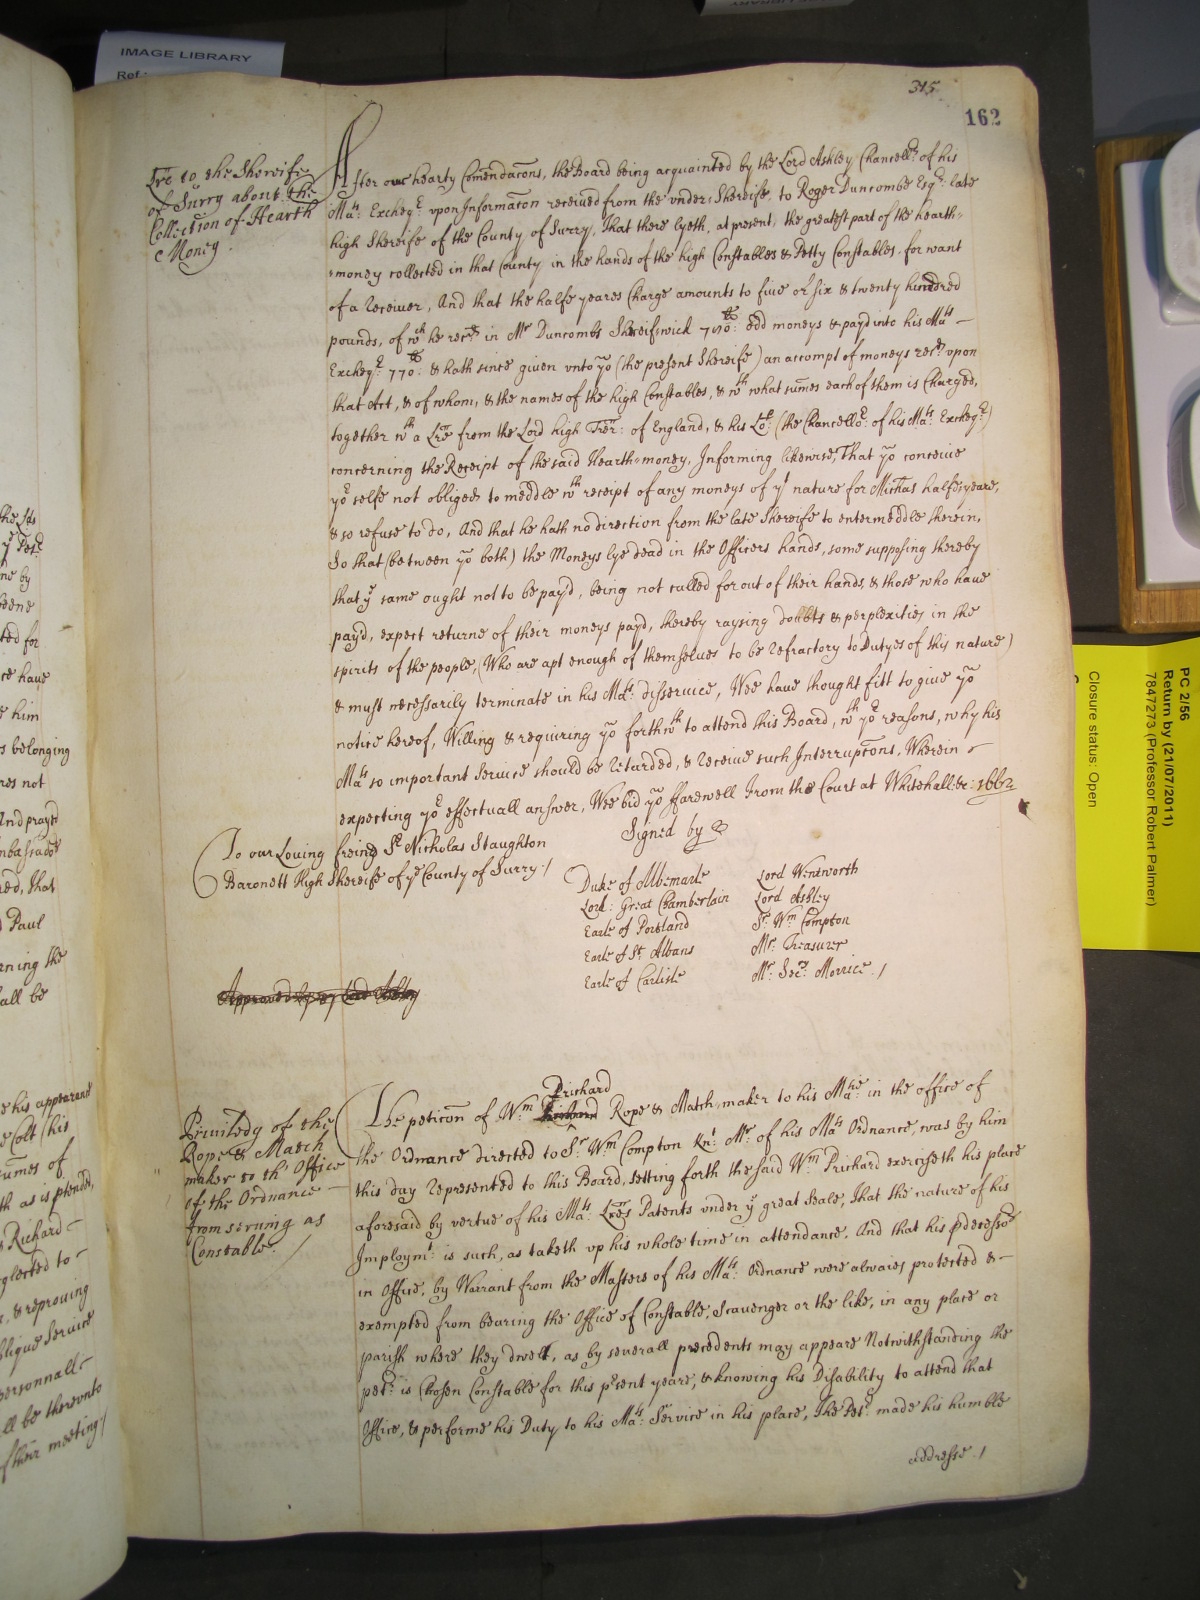 IMAGE LIBRARY
Ref:
315
162
Lre to the Shereife
of Surry about the
Collection of Hearth
Money.
After our hearty Comendacons, the Board being acquainted by the Lord Ashley Chancellr: of his
Mats: Excheqr: vpon Informacon received from the vnder-Shereife, to Roger Duncombe Esqr: late
high Shereife of the County of Surry, That there lyeth, at present, the greatest part of the hearth=
=money collected in that County in the hands of the high Constables & Petty Constables, for want
of a Receiuer, And that the halfe yeares Charge amounts to fiue or six & twenty hundred
pounds, of wch he recd. in Mr Duncombs Shereifwick odd moneys & payd into his Mats
Excheqr: 770: & hath since given vnto yo (the present Shereife) an accompt of moneys recd: vpon
that Act, & of whom, & the names of the high Constables, & wth what sumes each of them is Charged,
together wth a Lre from the Lord high Trer: of England, & his Lop: (the Chancellor: of his Mats: Excheqr:)
concerning the Receipt of the said Hearth=money, Informing likewise, That yo conceiue
yor selfe not obliged to meddle wth receipt of any moneys of yt nature for Michas halfe yeare,
& so refuse to do, And that he hath no direction from the late Shereife to entermeddle therein,
So that (between yo both) the Moneys lye dead in the Officers hands, some supposing thereby
that ye same ought not to be payd, being not called for out of their hands, & those who have
payd, expect returne of their moneys payd, thereby raysing doubts & perplexities in the
spirits of the people, (Who are apt enough of themselues to be refractory to Dutyes of this nature)
& must necessarily terminate in his Mats: disservice, Wee haue thought fitt to give yo
notice hereof, Willing & requiring yo forthwth to attend this Board, wth yor reasons, why his
Mats so important Service should be retarded, & receiue such Interruptons, Wherein
expecting yor effectuall answer, Wee bid yo ffarewell from the Court at Whitehall &c: 1662
To our Loving freind Sr Nicholas Staughton
Baronett High Shereife of ye County of Surry /
Signed by
Duke of Albemarle
Lord: Great Chamberlain
Earle of Portland
Earle of St. Albans
Earle of Carlisle
Lord Wentworth
Lord Ashley
Sr. Wm Compton
Mr. Treasurer
Mr. Secr. Morrice /
Approved by my Lord Ashley
Priviledg of the
Rope & Match
maker to th' Office
of the Ordnance
from serving as
Constable. /
Prichard
The peticon of Wm Richard Rope & Match-maker to his Matie in the office of
the Ordnance directed to Sr Wm Compton Knt. Mr. of his Mats Ordnance, was by him
this day represented to this Board, setting forth the said Wm Prichard exerciseth his place
aforesaid by vertue of his Mats: Lres Patents vnder ye great Seale, That the nature of his
Imploymt: is such, as taketh vp his whole time in attendance. And that his pdecessor
in Office, by Warrant from the Masters of his Mats: Ordnance were alwaies protected &
exempted from bearing the Office of Constable, Scavenger or the like, in any place or
parish where they dwelt, as by severall precedents may appeare Notwithstanding the
petr: is Chosen Constable for this present yeare, & knowing his Disability to attend that
Office, & performe his Duty to his Mats: Service in his place, The Petr made his humble
addresse /
PC 2/56
Return by (21/07/2011)
7847273 (Professor Robert Palmer)
Closure status: Open